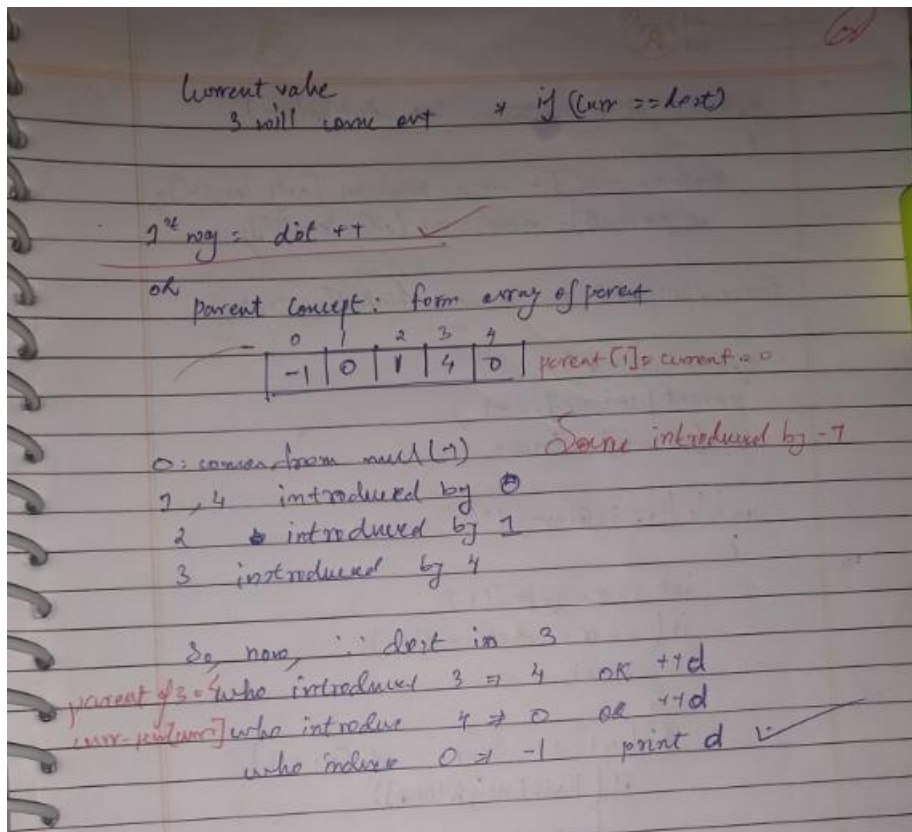 Current value
3 will come out * if (curr == dest)
1st way = dist ++
OR
parent concept: form array of parent
0 1 2 3 4
-1 0 1 4 0 parent[1] = current = 0
0: comes from null (-1) Source introduced by -1
1, 4 introduced by 0
2 introduced by 1
3 introduced by 4
So, now, ∴ dest is 3
parent of 3 = 4 who introduced 3 ⇒ 4 OK ++d
curr = par[curr] who introduce 4 ⇒ 0 OK ++d
who introduce 0 ⇒ -1 print d